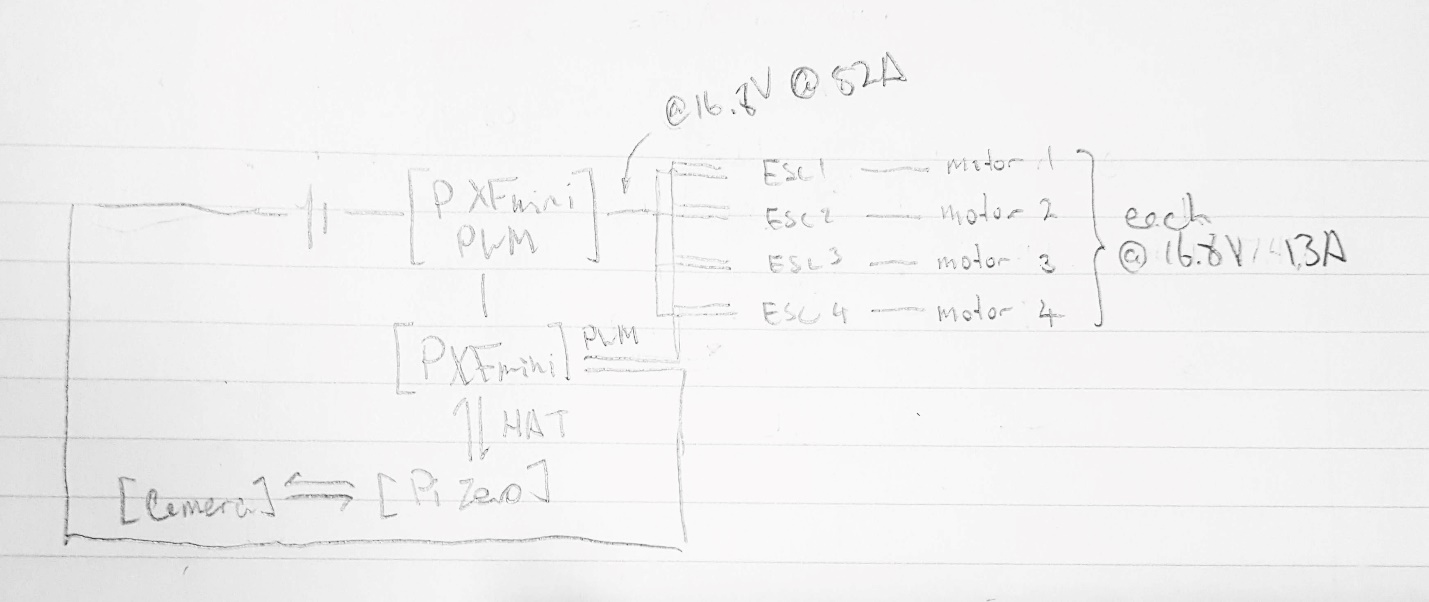 @16.8V @ 52A
[PXFmini PWM]
ESC1 — motor 1
ESC2 — motor 2
ESC3 — motor 3
ESC4 — motor 4
each
@ 16.8V / 13A
[PXFmini] PWM
HAT
[Camera] [Pi Zero]